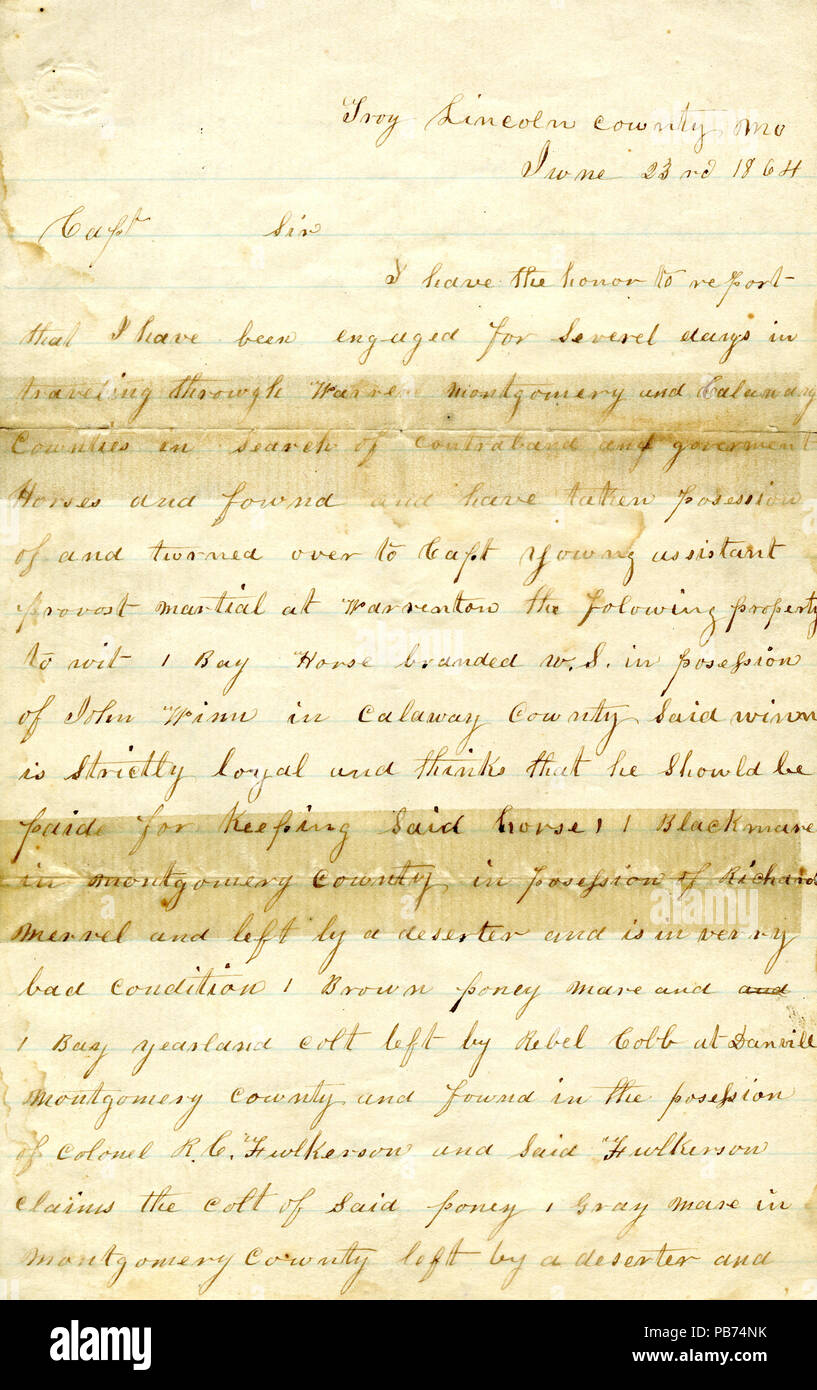 Troy Lincoln county Mo
June 23rd 1864
Capt Sir
I have the honor to report
that I have been engaged for Severel days in
traveling through Warren Montgomery and Calaway
Counties in Search of Contraband and goverment
Horses and found and have taken posession
of and turned over to Capt Young assistant
provost martial at Warrenton the folowing property
to wit 1 Bay Horse branded W.S. in posession
of John Winn in Calaway County Said winn
is Strictly loyal and thinks that he Should be
paid for Keeping Said horse 1 1 Black mare
in Montgomery County in posession of Richard
Merrel and left by a deserter and is in verry
bad condition 1 Brown poney mare and and
1 Bay yearland colt left by Rebel Cobb at Danvill
Montgomery County and found in the posession
of Colonel R.C. Fulkerson and Said Fulkerson
claims the colt of Said poney 1 Gray Mare in
Montgomery County left by a deserter and
alamy
Image ID: PB74NK
www.alamy.com